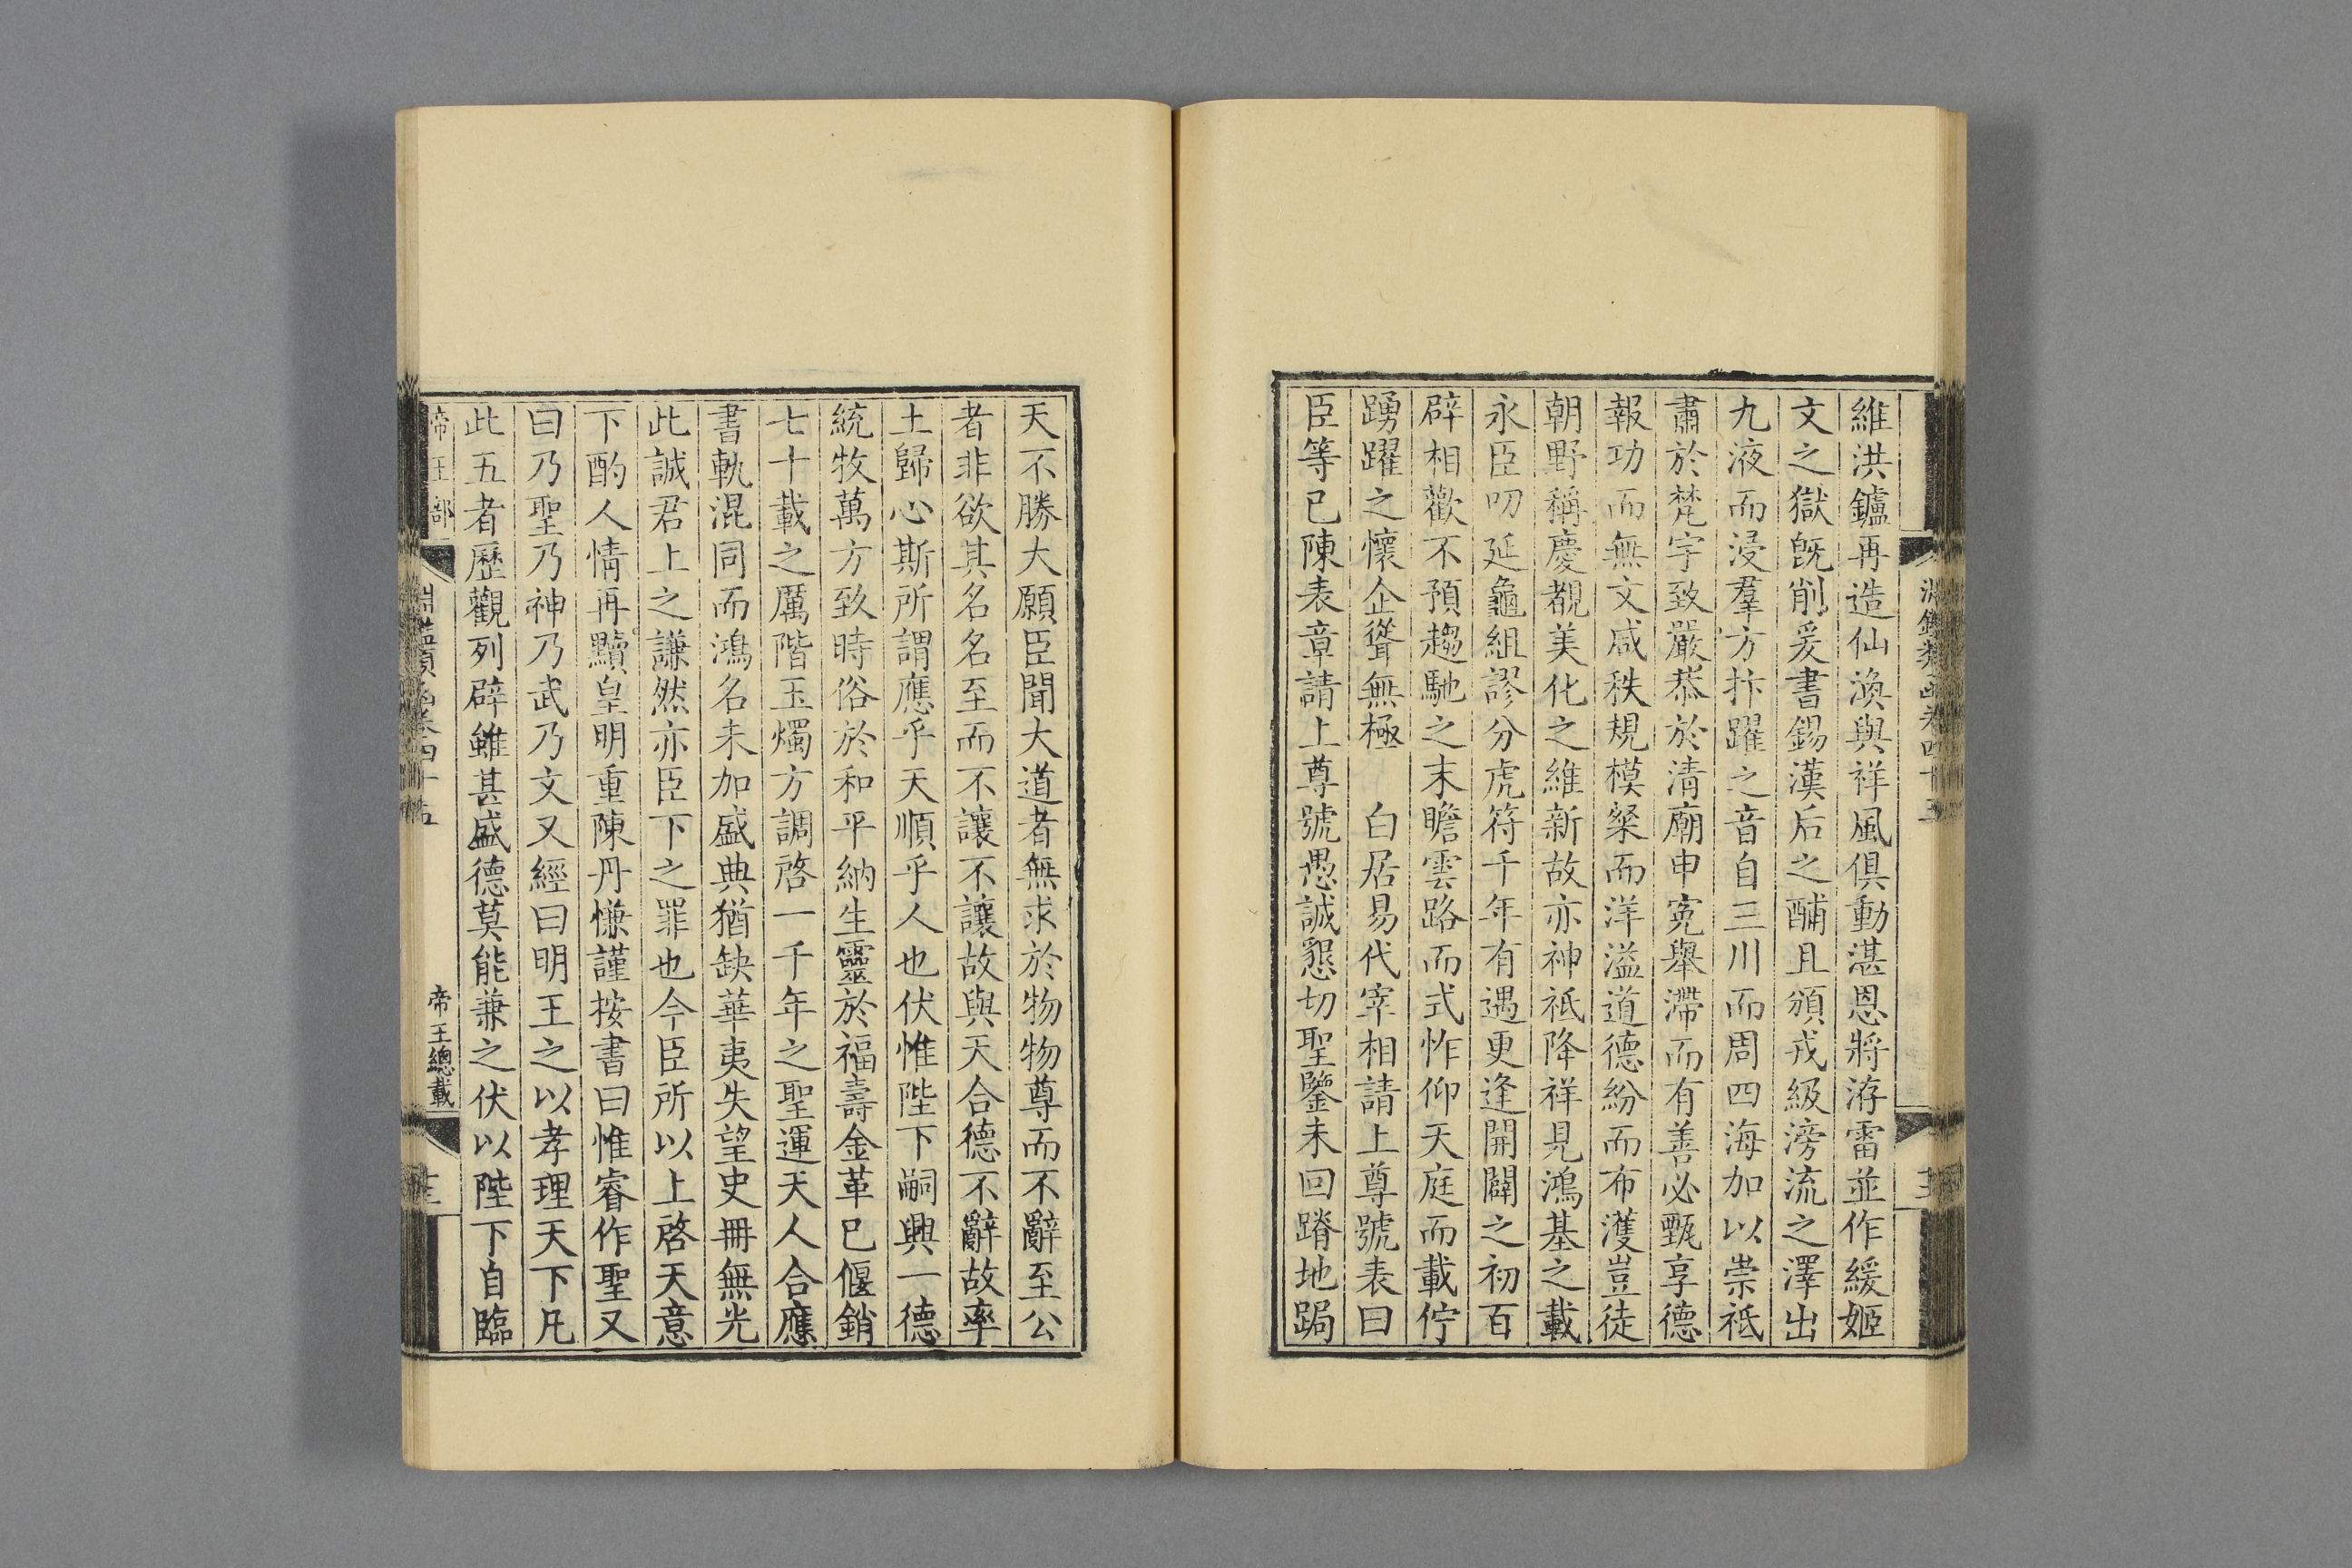 淵鑑類函卷四十五
維洪鑪再造仙渙與祥風俱動湛恩將洊雷並作緩姬
文之獄旣削爰書錫漢后之酺且頒戎級滂流之澤出
九液而浸羣方抃躍之音自三川而周四海加以崇祗
肅於梵宇致嚴恭於清廟申寃舉滯而有善必甄享德
報功而無文咸秩規模粲而洋溢道德紛而布濩豈徒
朝野稱慶覩美化之維新故亦神祗降祥見鴻基之載
永臣叨延龜組謬分虎符千年有遇更逢開闢之初百
辟相歡不預趨馳之末瞻雲路而式怍仰天庭而載佇
踴躍之懷企聳無極　白居易代宰相請上尊號表曰
臣等已陳表章請上尊號愚誠懇切聖鑒未回蹐地跼
天不勝大願臣聞大道者無求於物物尊而不辭至公
者非欲其名名至而不讓不讓故與天合德不辭故率
土歸心斯所謂應乎天順乎人也伏惟陛下嗣興一德
統牧萬方致時俗於和平納生靈於福壽金革已偃銷
七十載之厲階玉燭方調啓一千年之聖運天人合應
書軌混同而鴻名未加盛典猶缺華夷失望史冊無光
此誠君上之謙然亦臣下之罪也今臣所以上啓天意
下酌人情再黷皇明重陳丹慊謹按書曰惟睿作聖又
曰乃聖乃神乃武乃文又經曰明王之以孝理天下凡
此五者歷觀列辟雖甚盛德莫能兼之伏以陛下自臨
帝王部
淵鑑類函卷四十五
帝王總載